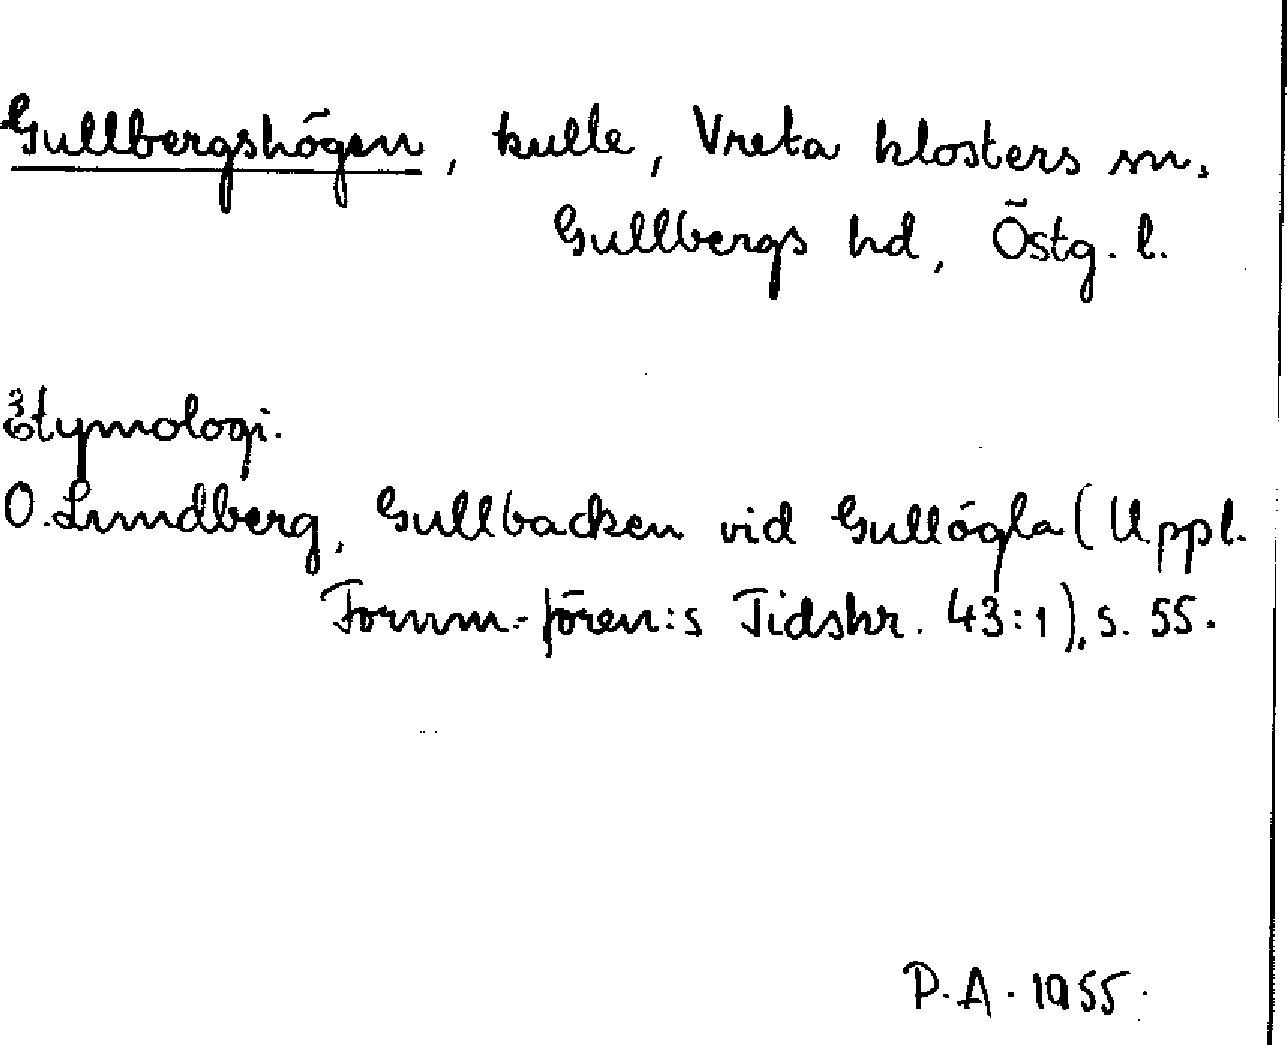 Gullbergshögen, kulle, Vreta klosters sn,
Gullbergs hd, Östg. l.
Etymologi.
O. Lundberg, Gullbacken vid Gullögla (Uppl.
Fornm.-fören:s Tidskr. 43:1), s. 55.
P.A. 1955.